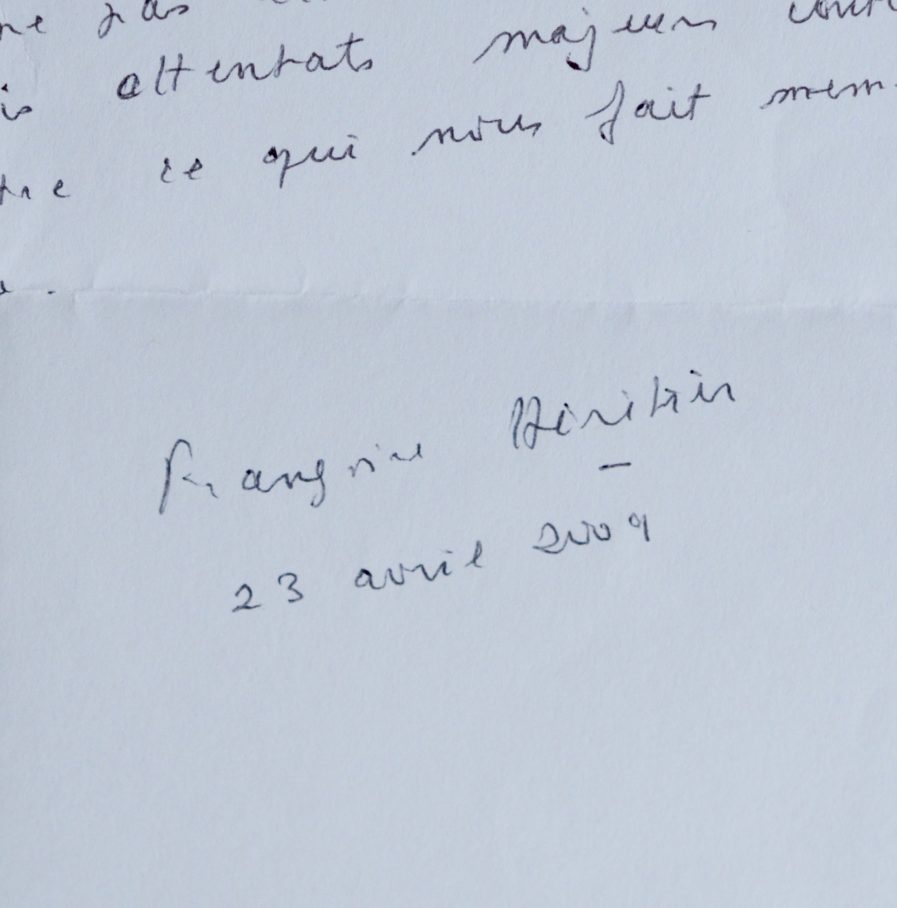 ne pas
attentats majeurs
ce qui nous fait mem
Françoise Héritier
23 avril 2009